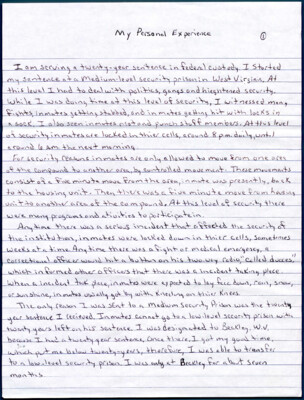 My Personal Experience
①
I am serving a twenty-year sentence in Federal custody. I started
my sentence at a Medium-level security prison in West Virginia. At
this level I had to deal with politics, gangs and hieghtened security.
While I was doing time at this level of security, I witnessed many
fights, inmates getting stabbed, and inmates getting hit with locks in
a sock. I also seen inmates and prison staff members. At this level
of security inmates are locked in thier cells, around 8 p.m. daily, until
around 6 am the next morning.
For security reasons inmates are only allowed to move from one area
of the compound to another area, by controlled movement. These movements
consist of a five minute move from the area, inmate was presently, back
to the housing unit. Then there was a five minute move from housing
unit to another area of the compound. At this level of security there
were many programs and ativities to participate in.
Any time there was a serious incident that affected the security of
the institution, inmates were locked down in thier cells, sometimes
weeks at a time. Any time there was a fight or medical emergency, a
correctional officer would hit a button on his two way radio, called "dueces"
which informed other officers that there was a incident taking place.
When a incident took place, inmates were expected to lay face down, rain, snow,
or sunshine, inmates usually got by with kneeling on thier knees.
The only reason I was sent to a Medium security Prison was the twenty
year sentence I recieved. Inmates cannot go to a low level security prison with
twenty years left on his sentence. I was designated to Beckley, W.V.
because I had a twenty year sentence. Once there, I got my good time,
which put me below twenty-years, therefore, I was able to transfer
to a low level security prison. I was only at Beckley for about seven
months.